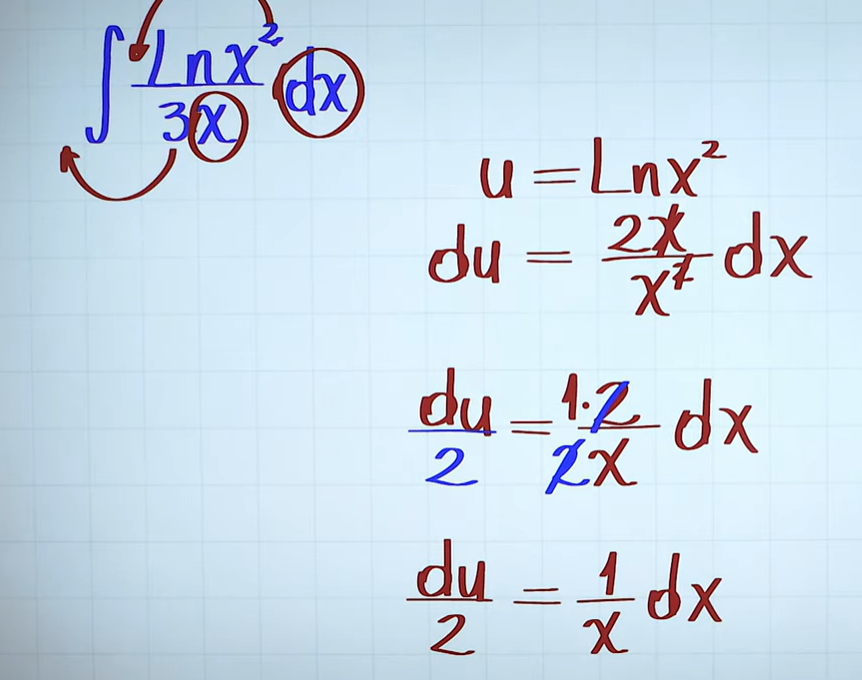 ∫ Lnx² / 3x dx
u = Lnx²
du = 2x / x² dx
du / 2 = 1·2 / 2x dx
du / 2 = 1 / x dx